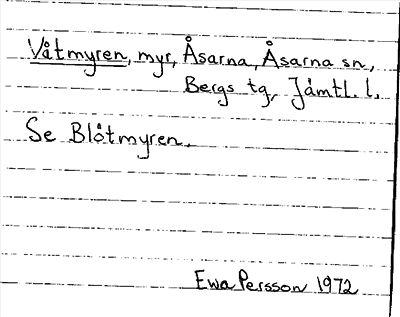 Våtmyren, myr, Åsarna, Åsarna sn,
Bergs tg, Jämtl. l.
Se Blötmyren.
Ewa Persson 1972